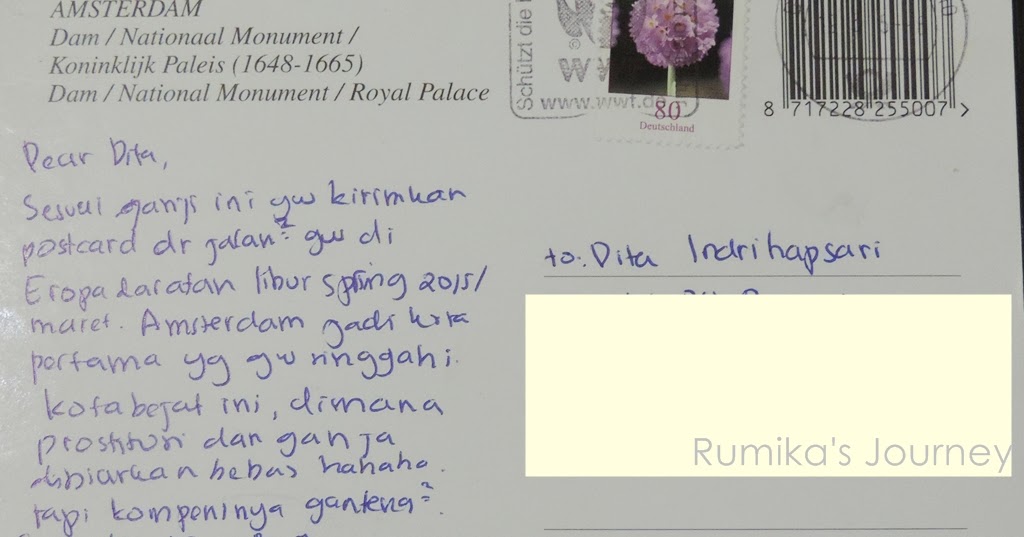 AMSTERDAM
Dam / Nationaal Monument /
Koninklijk Paleis (1648-1665)
Dam / National Monument / Royal Palace
Schützt die
©
www.wwf.de
80
Deutschland
8 717228 255007 >
Dear Dita,
Sesuai janji ini gw kirimkan
postcard dr jalan² gw di
Eropa daratan libur spring 2015/
maret. Amsterdam jadi kota
pertama yg gw singgahi.
Kota bejat ini, dimana
prostitusi dan ganja
dibiarkan bebas hahaha.
tapi kompeninya ganteng².
to: Dita Indrihapsari
Rumika's Journey